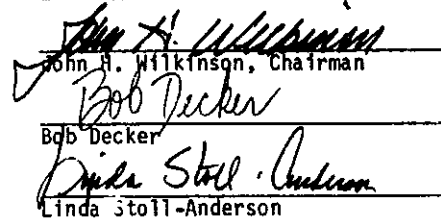 John H. Wilkinson
John H. Wilkinson, Chairman
Bob Decker
Bob Decker
Linda Stoll-Anderson
Linda Stoll-Anderson